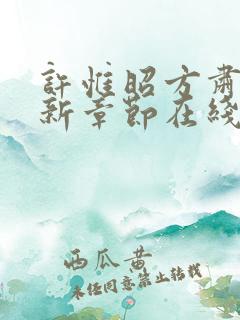 許惟昭方肅
新章節在綫
西瓜黄
未经同意禁止转载